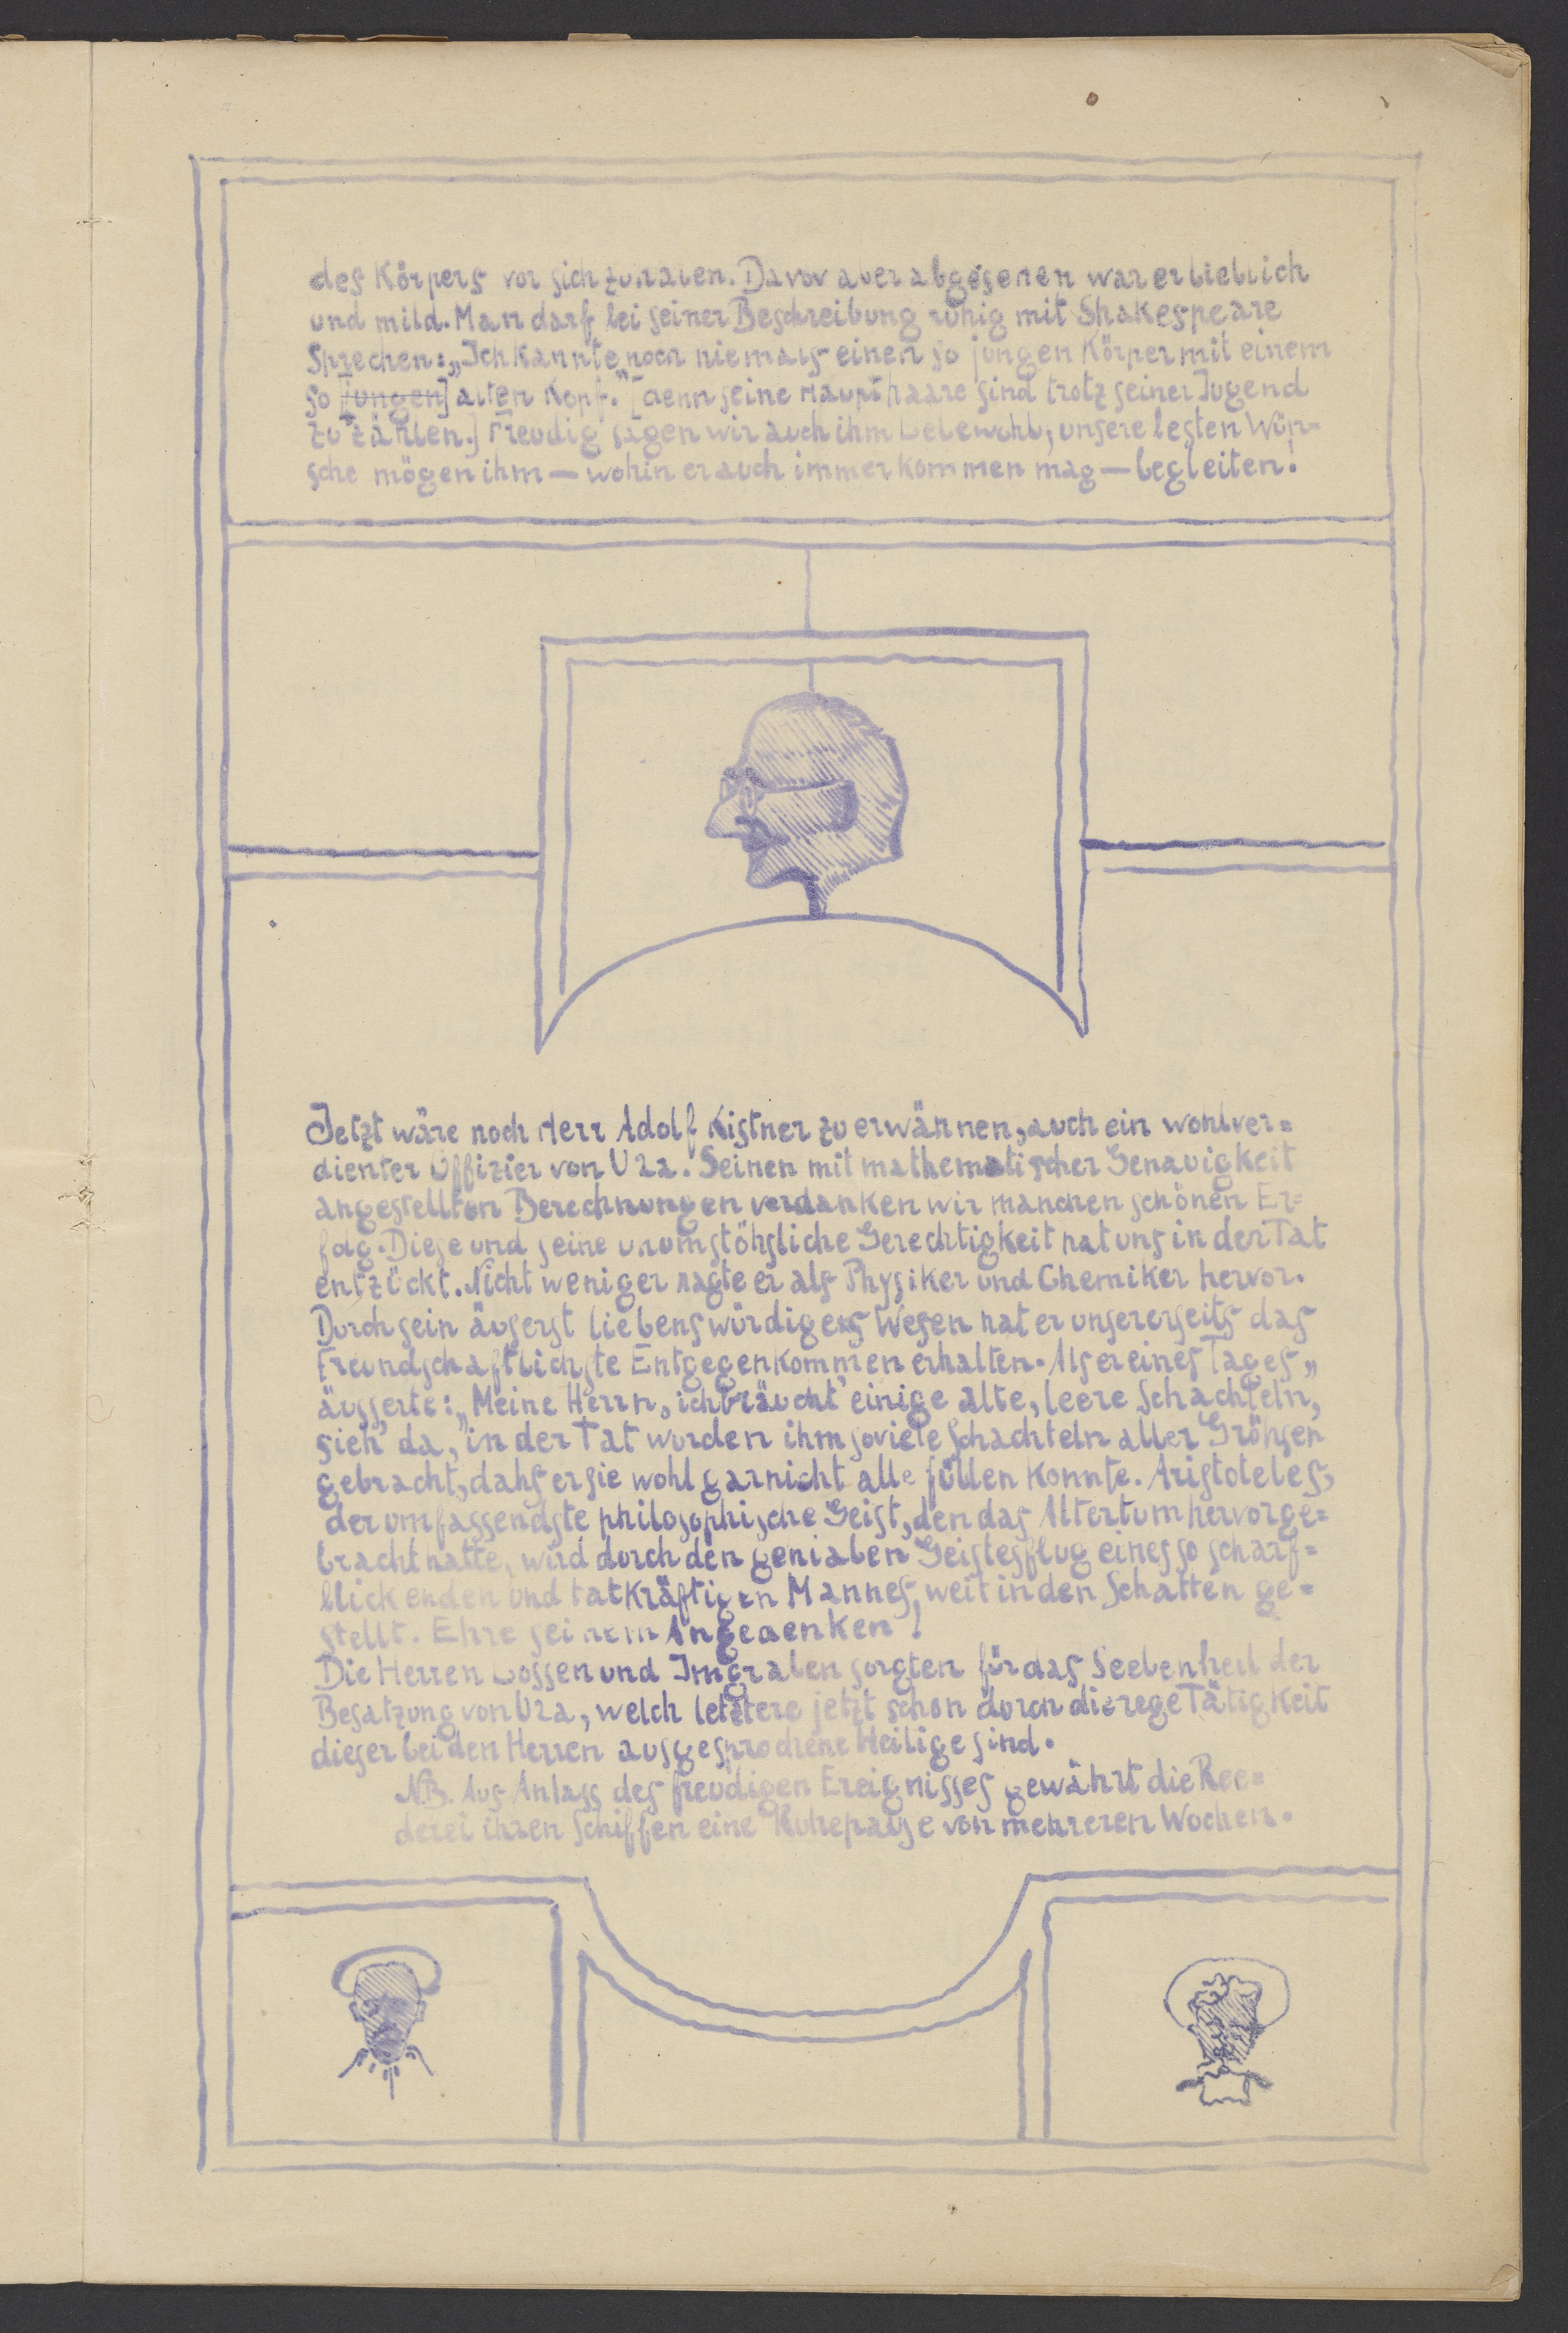 des Körpers vor sich zu haben. Davon aber abgesehen war er lieblich
und mild. Man darf bei seiner Beschreibung ruhig mit Shakespeare
Sprechen: „Ich kannte noch niemals einen so jungen Körper mit einem
so [jungen] alten Kopf." [denn seine Haupthaare sind trotz seiner Jugend
zu zählen.] Freudig sagen wir auch ihm Lebewohl, unsere besten Wün=
sche mögen ihm — wohin er auch immer kommen mag — begleiten!
Jetzt wäre noch Herr Adolf Kistner zu erwähnen, auch ein wohlver=
dienter Offizier von U2a. Seinen mit mathematischer Genauigkeit
angestellten Berechnungen verdanken wir manchen schönen Er=
folg. Diese und seine unumstöhsliche Gerechtigkeit hat uns in der Tat
entzückt. Nicht weniger ragte er als Physiker und Chemiker hervor.
Durch sein äuserst liebenswürdiges Wesen hat er unsererseits das
Freundschaftlichste Entgegenkommen erhalten. Als er eines Tages „
äusserte: „Meine Herrn, ich bräucht' einige alte, leere Schachteln,
sieh' da, "in der Tat wurden ihm soviele Schachteln aller Gröhsen
gebracht, dahs er sie wohl garnicht alle füllen konnte. Aristoteles,
der umfassendste philosophische Geist, den das Altertum hervorge=
bracht hatte, wird durch den genialen Geistesflug eines so scharf=
blickenden und tatkräftigen Mannes, weit in den Schatten ge=
stellt. Ehre seinem Angedenken!
Die Herren Lossen und Imgraben sorgten für das Seelenheil der
Besatzung von U2a, welch letztere jetzt schon durch die rege Tätigkeit
dieser beiden Herren ausgesprochene Heilige sind.
N.B. Aus Anlass des freudigen Ereignisses gewährt die Ree=
derei ihren Schiffen eine Ruhepause von mehreren Wochen.